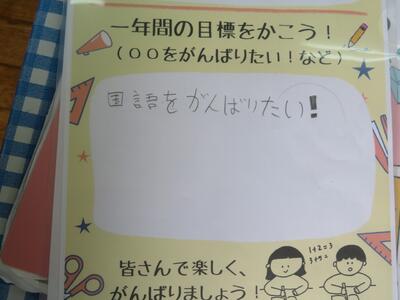 一年間の目標をかこう！
（〇〇をがんばりたい！など）
国語をがんばりたい！
1+2=3
3+4=
皆さんで楽しく、
がんばりましょう！